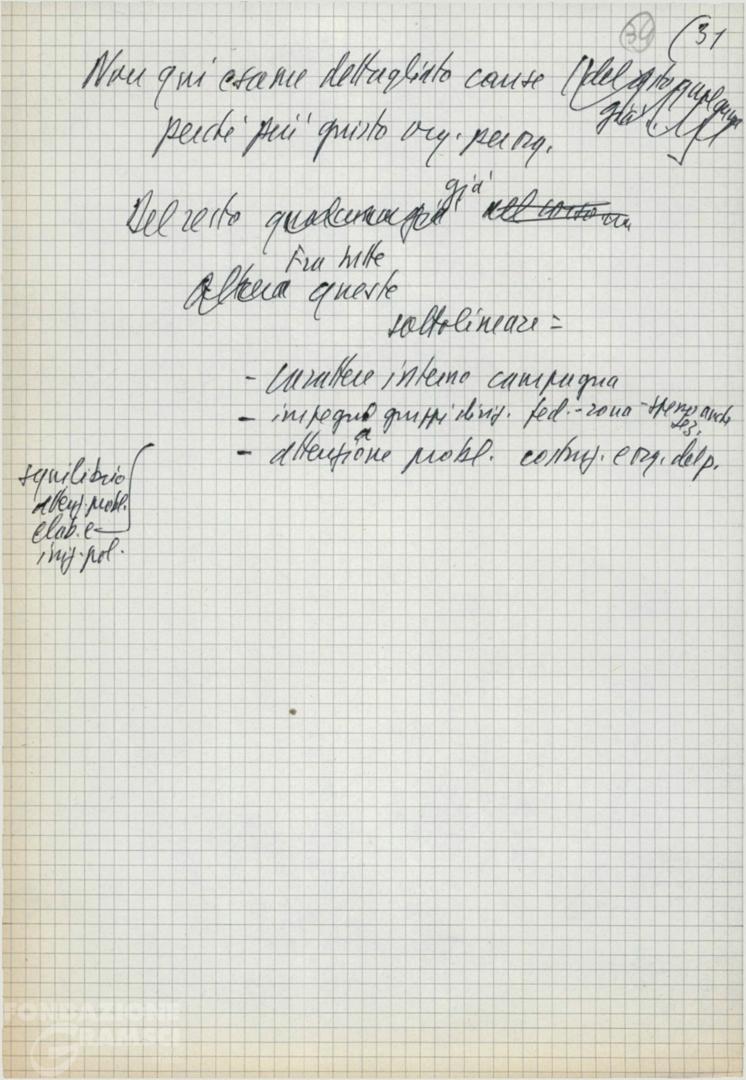 39 (31
Non qui esame dettagliato cause (del resto qualcuna
già
perché più giusto org. per org.
già
Del resto qualcuna già nel corso
Fra tutte
Altra queste
sottolineare =
- carattere interno campagna
- impegno gruppi dirig. fed. - zona - spesso anche
sez.
- attenzione a probl. costruz. e org. del p.
squilibrio
attenz. probl.
elab. e
iniz. pol.
FONDAZIONE
GRAMSCI